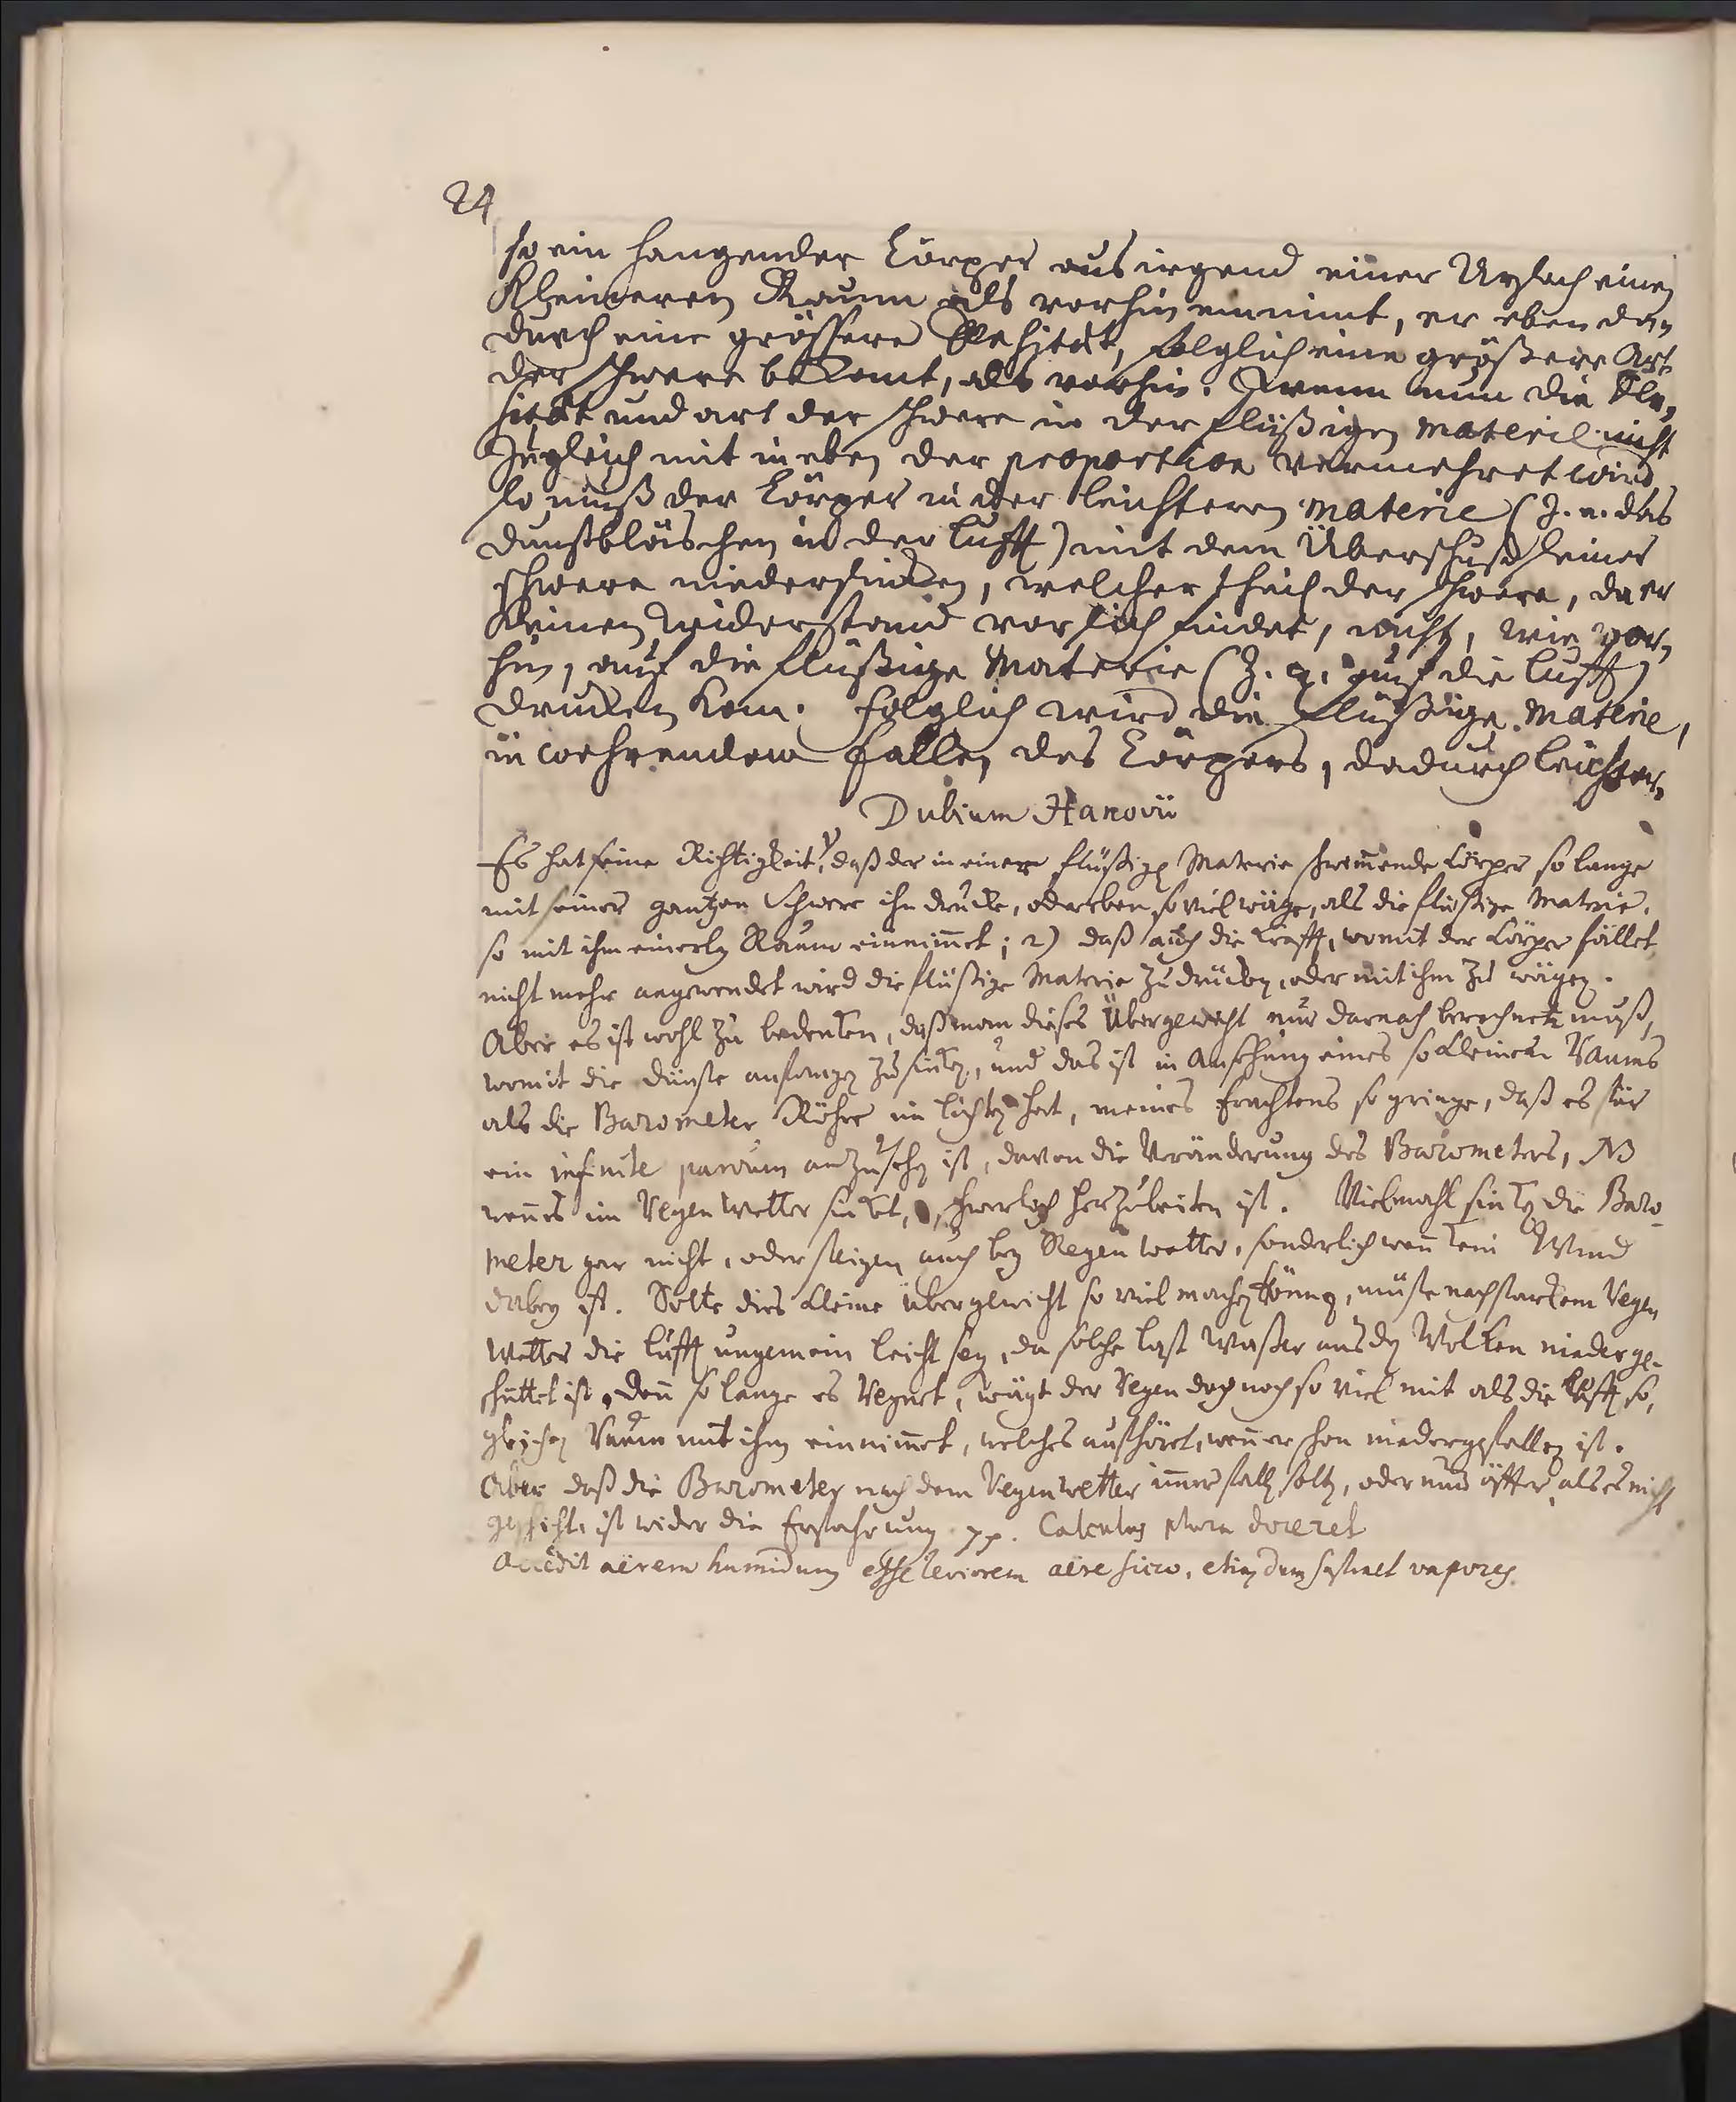 24
so ein hangender Cörper aus irgend einer Ursach einen
Kleineren Raum als vorhin einnimt, er eben dan
durch eine grössere Densität, folglich eine größere Art
der schwere bekomt, als vorhin. Wenn nun die Den,
sität und art der schwere in der flüßigen materie nicht
zugleich mit in eben der proportion vermehret wird
so muß der Cörper in der leichteren materie (z. e. das
dunstbläschen in der lufft) mit dem Überschuß seiner
schwere niedersincken, welcher theil der schwere, da er
keinen widerstand vor sich findet, nicht, wie vor,
hin, auf die flüßige Materie (z. e. auf die lufft)
drucken kan. folglich wird die flüßige materie,
in wehrendem fallen des Cörpers, dadurch leichter.
Dubium Hanovii
Es hat seine Richtigkeit, daß der in einer flüßigen Materie schwimmende Cörper so lange
mit seiner gantzen Schwere ihn drucke, oder eben so viel wäge, als die flüßige Materie,
so mit ihm einerley Raum einnimmet; 2) daß auch die Krafft, womit der Cörper fället
nicht mehr angewendet wird die flüßige Materie zu drücken, oder mit ihm zu wägen.
Aber es ist wohl zu bedenken, daß man dieses Übergewicht nur darnach berechnen muß,
womit die dünste anfangen zu sinken, und das ist in Ansehung eines so kleinen Raums
als die Barometer Röhre im lichten hat, meines Erachtens so geringe, daß es für
ein infinite parvum anzusehen ist, davon die Veränderung des Barometers, NB
wenn es im Regenwetter sinkt, schwerlich herzuleiten ist. Vielmahl sinken die Baro-
meter gar nicht, oder steigen auch bey Regenwetter, sonderlich wenn kein Wind
dabey ist. Solte dies kleine übergewicht so viel machen können, müste nach starkem Regen
Wetter die lufft ungemein leicht seyn, da solche last Waßer aus den Wolken niederge-
schüttet ist, denn so lange es Regnet, wägt der Regen doch noch so viel mit als die lufft so
gleichen Raum mit ihm einnimmet, welches aufhöret, wenn er schon niedergefallen ist.
Aber daß die Barometer nach dem Regenwetter immer fallen solten, oder nur öffter als es nicht
geschicht, ist wider die Erfahrung pp. Calculus plura doceret
Accedit aërem humidum esse leviorem aëre sicco, etiam dum sustinet vapores.